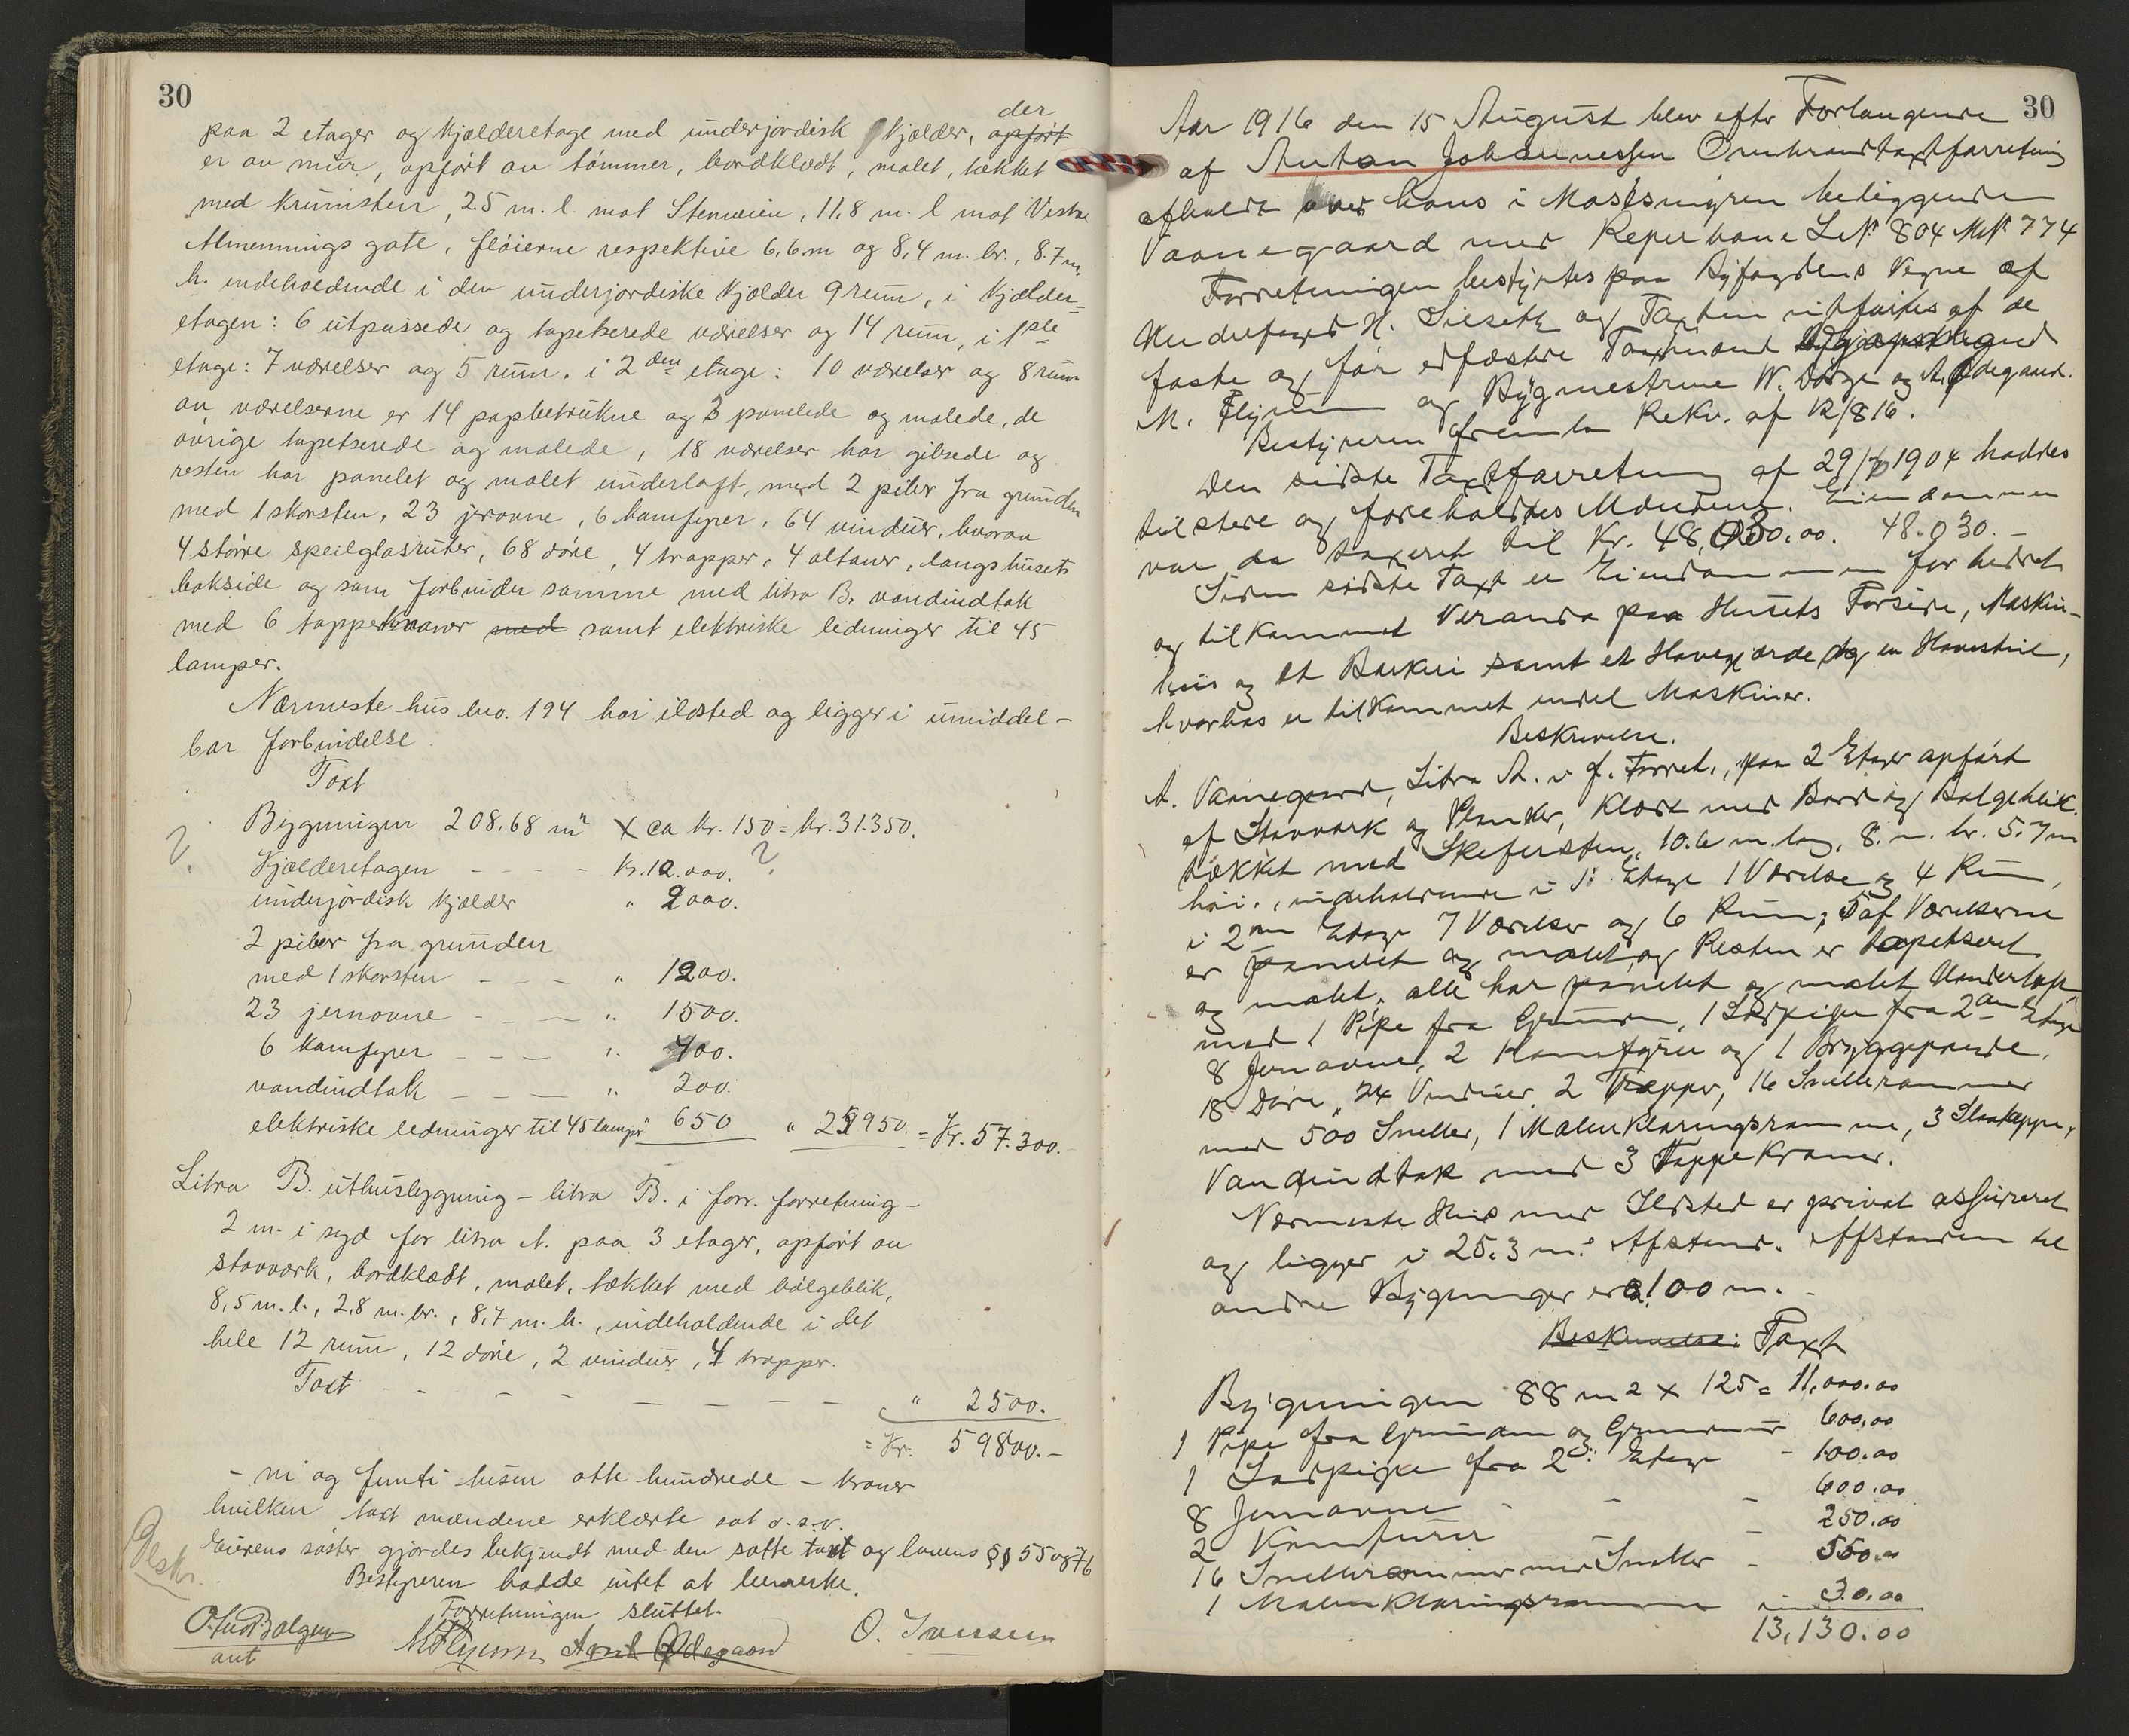 30
paa 2 etager og kjælderetage med underjordisk kjælder, opført der
er av mur, opført av tømmer, bordklædt, malet, tækket
med krumsten, 25 m. l. mot Stenveien, 11,8 m. l mot Vestre
Almennings gate, fløierne respektive 6,6 m og 8,4 m. br., 8.7 m.
h. indeholdende i den underjordiske kjælder 9 rum, i kjælder-
etagen: 6 utpussede og tapetserede værelser og 14 rum, i 1ste
etage: 7 værelser og 5 rum. i 2den etage: 10 værelser og 8 rum
av værelserne er 14 papbetrukne og 3 panelede og malede, de
øvrige tapetserede og malede, 18 værelser har gibsede og
resten har panelet og malet underloft, med 2 piber fra grunden
med 1 skorsten, 23 jernovne, 6 komfyrer, 64 vinduer, hvorav
4 større speilglasruter, 68 døre, 4 trapper, 4 altaner, langs husets
bakside og som forbinder samme med litra B. vandindtak
med 6 tappekraner med samt elektriske ledninger til 45
lamper.
Nærmeste hus bno. 194 har ildsted og ligger i umiddel-
bar forbindelse.
Taxt
Bygningen 208,68 m² x ca kr. 150 = kr. 31.350.
Kjælderetagen - - - - kr. 12.000. ?
underjordisk kjælder " 2000.
2 piber fra grunden
med 1 skorsten - - - " 1200.
23 jernovne - - - " 1500.
6 komfyrer - - - " 400.
vandindtak - - - " 200.
elektriske ledninger til 45 lamper " 650 " 25950. = Kr. 57.300.
Litra B. uthusbygning - litra B. i forr. forretning -
2 m. i syd for litra A. paa 3 etager, opført av
stavverk, bordklædt, malet, tækket med bølgeblik,
8,5 m. l., 2,8 m. br., 8,7 m. h., indeholdende i det
hele 12 rum, 12 døre, 2 vinduer, 4 trapper.
Taxt - - - - - - - " 2500.
= Kr. 59800.-
- ni og femti tusen otte hundrede - kroner
hvilken taxt mændene erklærte sat o.s.v.
Eierens søster gjordes bekjendt med den satte taxt og lovens §§ 55 og 76
Bestyreren hadde intet at bemerke.
Forretningen sluttet.
M Flyum Arnt Ødegaard O. Iversen
aut
30
Aar 1916 den 15 August blev efter Forlangende
af Anton Johannessen Ombrandtaxtforretning
afholdt over hans i beliggende
Vaanegaard med Reperbane LN. 804 MN. 774
Forretningen bestyrtes paa Byfogdens Vegne af
H. Sieseth og Taxten utførtes af de
faste og før edfæstede Taxtmænd
M. Flyum og Bygmestrene W. Dorge og A. Ødegaard.
Bestyreren fremla Rekv. af 12/8 16.
Den sidste Taxtforretning af 29/7 1904 haddes
tilstede og foreholdtes Mændene. Eiendommen
var da taxeret til Kr. 48,030.00. 48.030.-
Siden sidste Taxt er Eiendommen forbedret
og tilkommet Veranda paa Husets Forside, Maskin-
hus og et Barkeri samt et Havegjærde og en Havestue,
hvorhos er tilkommet endel Maskiner.
Beskrivelse.
A. Vaanegaard, Litra A. i f. Forret., paa 2 Etager opført
af Stavværk og Planker, klædt med Bord og Bølgeblik.
tækket med Skefersten, 10.6 m. lang, 8. m. br. 5.7 m
høi., indeholdende i 1. Etage 1 Værelse og 4 Rum,
i 2den Etage 7 Værelser og 6 Rum; 5 af Værelserne
er panelet og malet, og Resten er tapetseret
og malet, alle har panelet og malet Underloft,
med 1 Pipe fra Grunden, 1 fra 2den Etage
8 Jernovne, 2 Komfyrer og 1 Bryggepande,
18 Døre, 24 Vinduer, 2 Trapper, 16 Snellerammer
med 500 Sneller, 1 Malenklaringsramme, 3
Vandindtak med 3 Tappekraner.
Nærmeste Hus med Ildsted er privat assureret
og ligger i 25.3 m.s Afstand. Afstanden til
andre Bygninger er 100 m.-
Beskrivelse: Taxt
Bygningen 88 m2 x 125 = 11,000.00
1 Pipe fra Grunden og Grundmur 600.00
1 fra 2. Etage - 100.00
8 Jernovne - - - 600.00
2 Komfurer - - 250.00
16 Snellerammer med Sneller - 550.-
1 Malenklaringsramme - 30.00
13,130.00